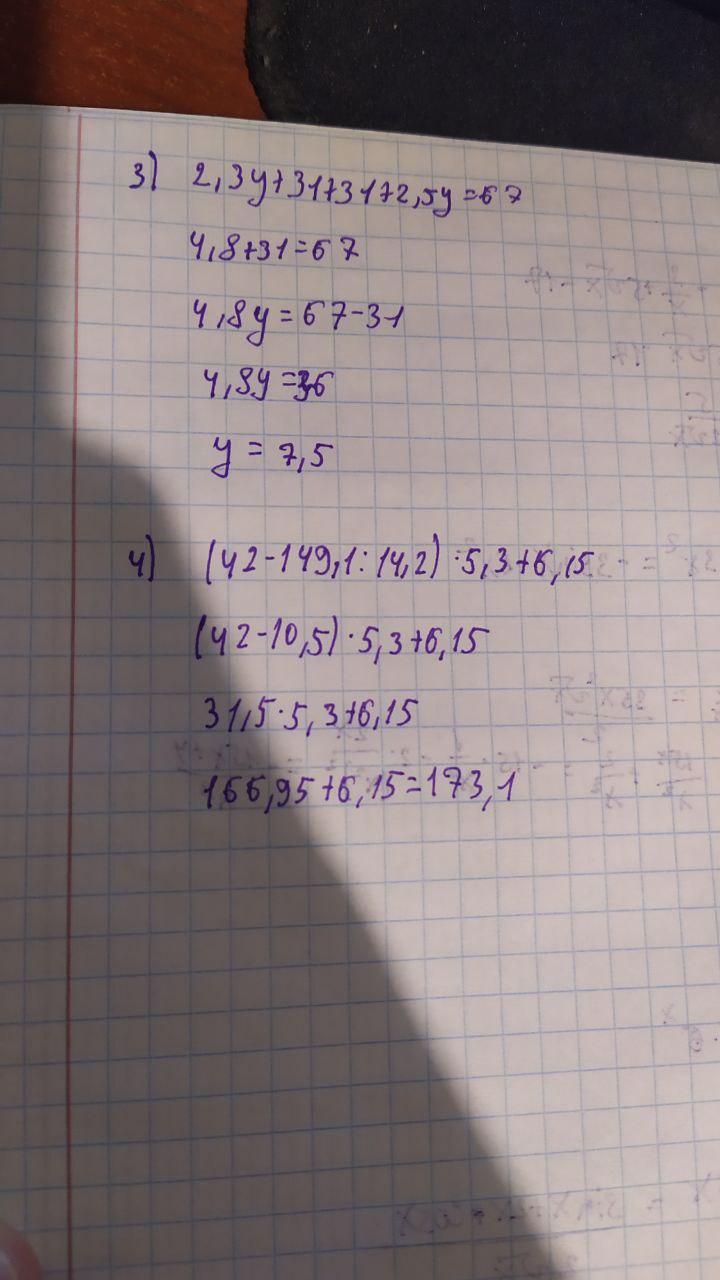 3) 2,3y+31+31+2,5y=67
4,8+31=67
4,8y=67-31
4,8y=36
y=7,5
4) (42-149,1:14,2)·5,3+6,15
(42-10,5)·5,3+6,15
31,5·5,3+6,15
166,95+6,15=173,1